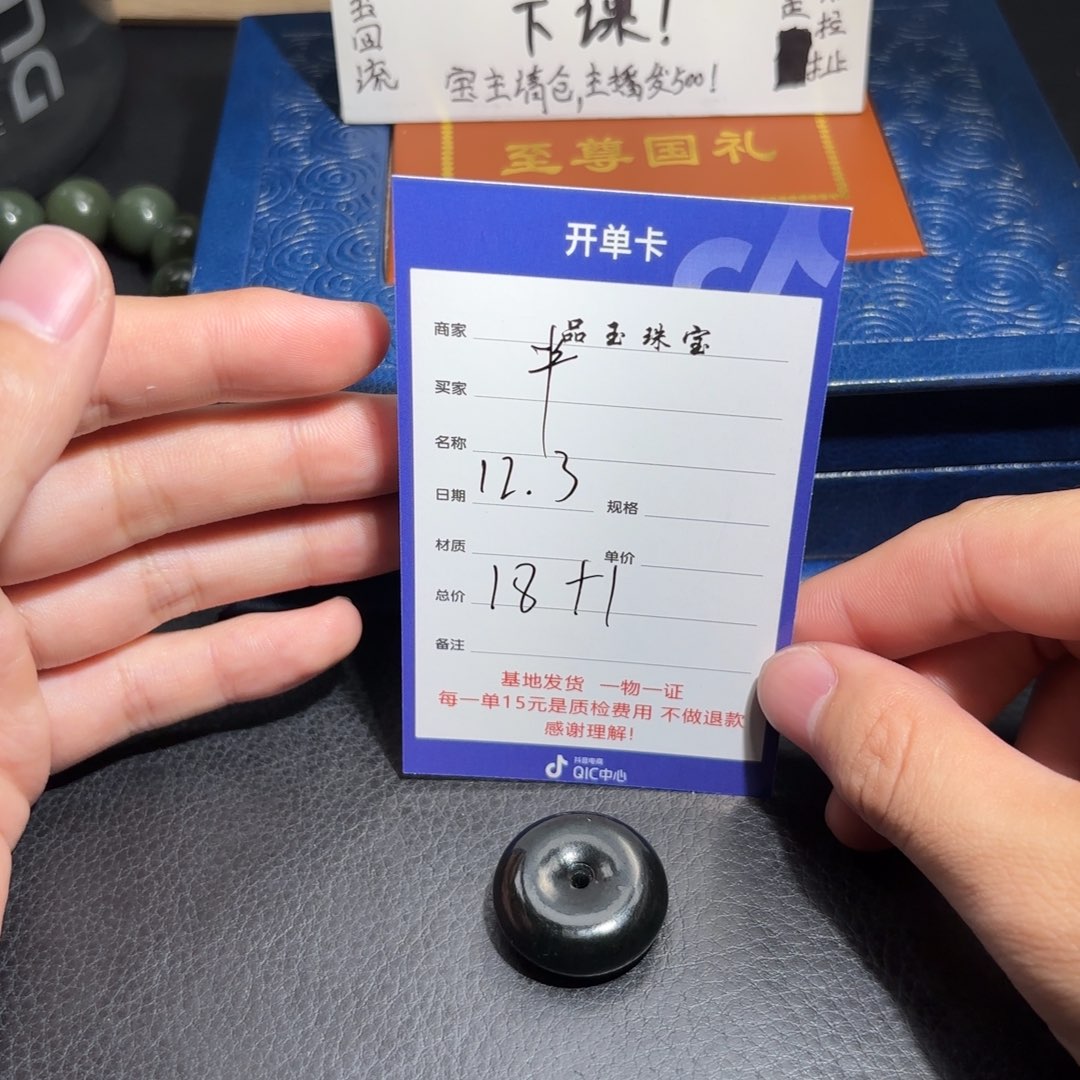 下课!
宝主清仓,主播发500!
玉回流
至尊国礼
开单卡
商家 品玉珠宝
买家
名称
日期 12.3 规格
材质 单价
总价 18+1
备注
基地发货 一物一证
每一单15元是质检费用 不做退款
感谢理解!
抖音电商
QIC中心